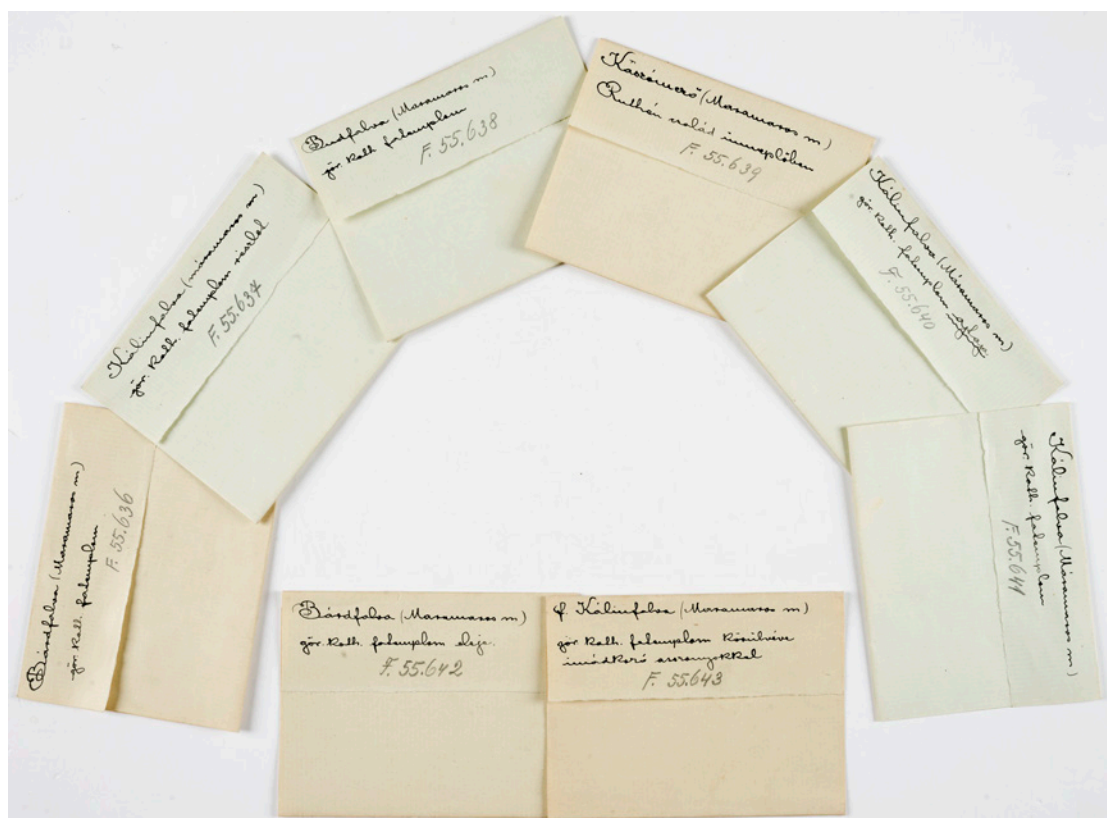 Bárdfalva (Maramaros m)
gör. kath. fatemplom
F. 55.636
Kálinfalva (Máramaros m)
gör. kath. fatemplom
F. 55.637
Budfalva (Maramaros m)
gör. kath. fatemplom
F. 55.638
(Maramaros m)
Ruthén család ünneplőben
F. 55.639
Kálinfalva (Máramaros m)
gör. kath. fatemplom
F. 55.640
Kálinfalva (Máramaros m)
gör. kath. fatemplom
F. 55.641
Bárdfalva (Maramaros m)
gör. kath. fatemplom eleje.
F. 55.642
f. Kálinfalva (Maramaros m)
gör. kath. fatemplom körülvéve
imádkozó asszonyokkal
F. 55.643